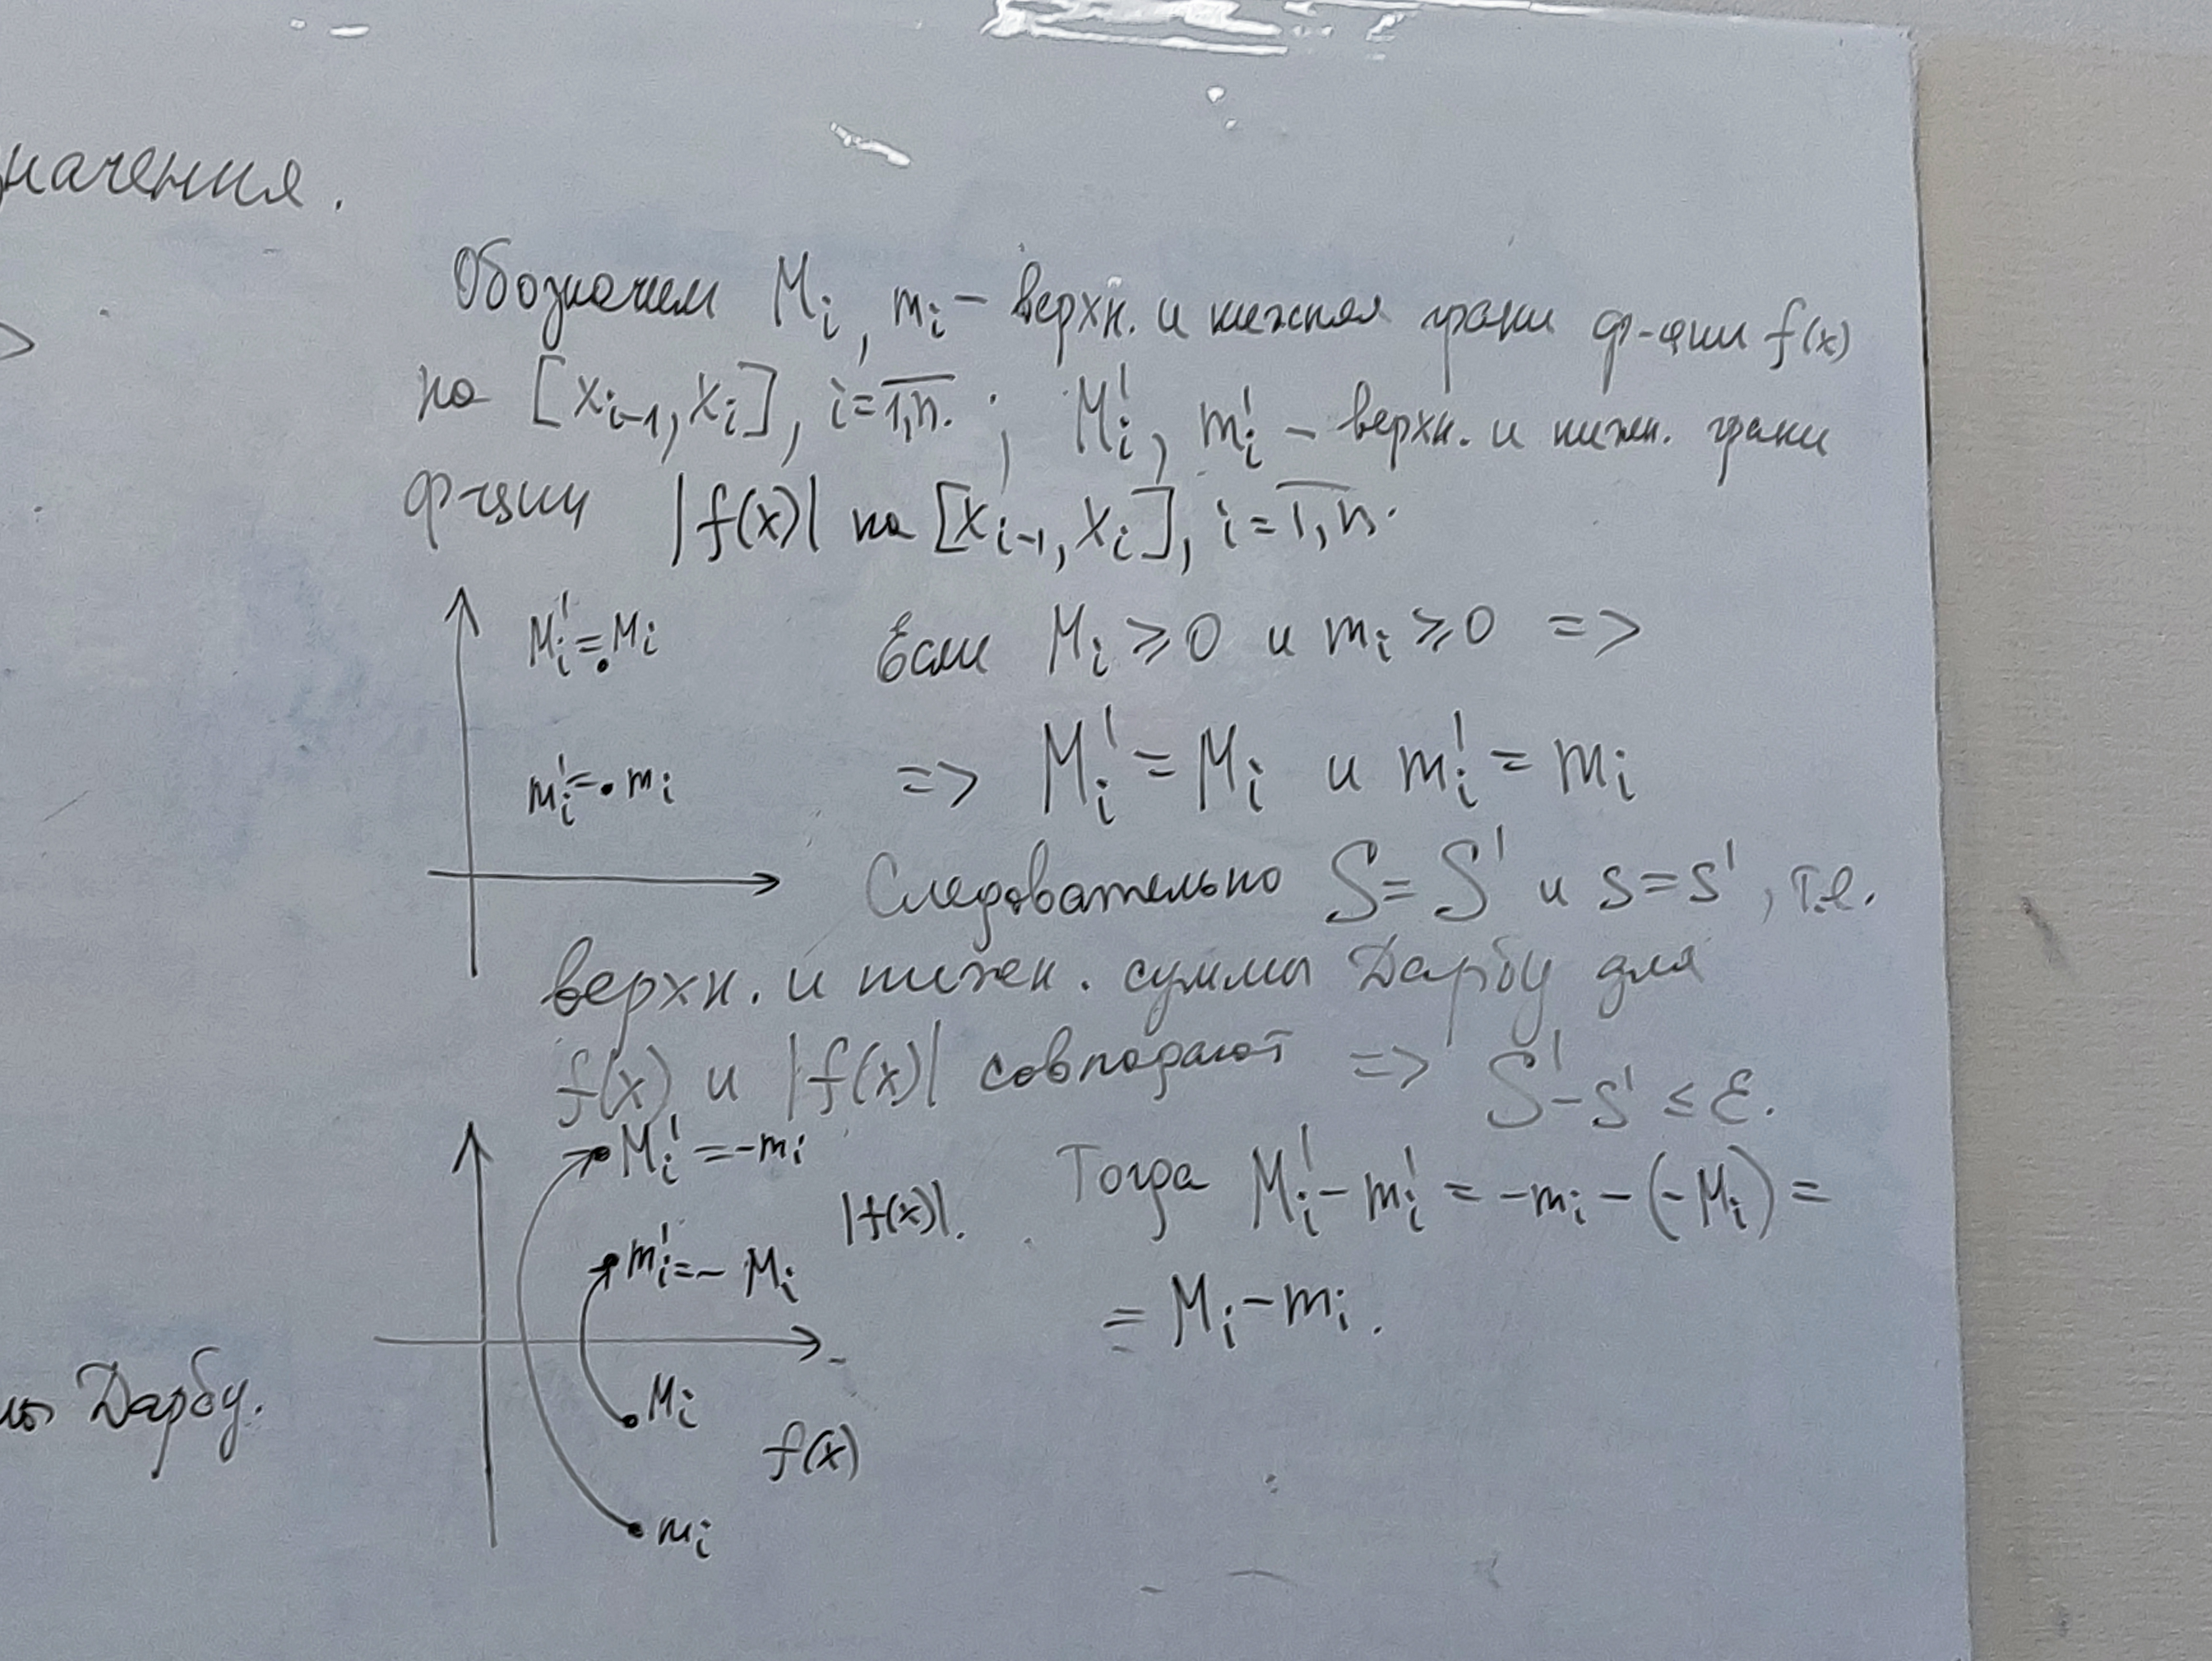 начения.
Обозначим Mi, mi – верхн. и нижняя грани ф-ции f(x)
на [xi-1, xi], i=1,n. ; M'i, m'i – верхн. и нижн. грани
ф-ции |f(x)| на [xi-1, xi], i=1,n.
M'i = Mi
Если Mi ⩾ 0 и mi ⩾ 0 =>
m'i = mi
=> M'i = Mi и m'i = mi
Следовательно S = S' и s = s', т.е.
верхн. и нижн. суммы Дарбу для
f(x) и |f(x)| совпадают => S' – s' ≤ ε.
M'i = -mi
Тогда M'i – m'i = -mi – (-Mi) =
|f(x)|.
m'i = - Mi
= Mi – mi.
Mi
f(x)
mi
Дарбу.